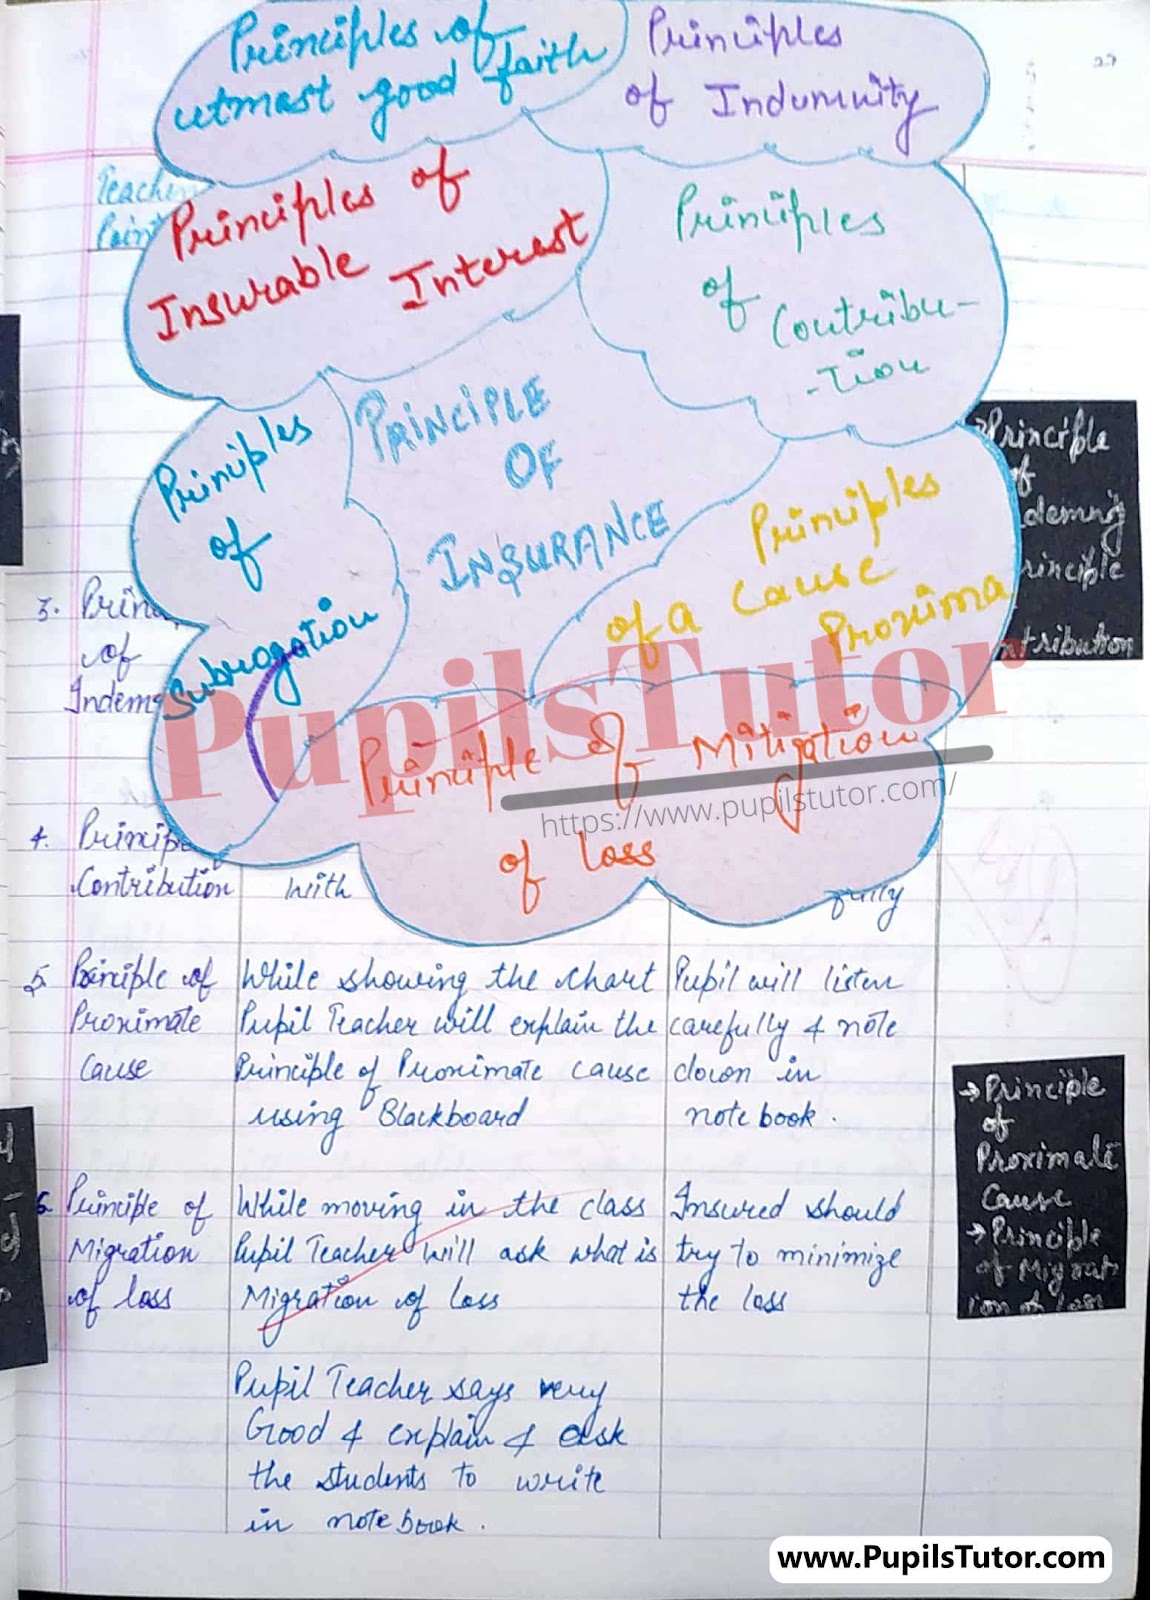 27
Principles of
utmast good faith
Principles
of Indumnity
Principles of
Insurable Interest
Principles
of
Contribu-
-tion
Principles
of
Subrogation
PRINCIPLE
OF
INSURANCE
Principles
of a Cause
Proxima
Principle of Mitigation
of loss
Teache
Point
3. Princ
of
Indem
4. Principle
Contribution
with
fully
Principle
of
demnity
rinciple
ntribution
PupilsTutor
https://www.pupilstutor.com/
5. Principle of
Proximate
Cause
While showing the chart
Pupil Teacher will explain the
Principle of Proximate cause
using Blackboard
Pupil will listen
carefully & note
down in
note book.
→Principle
of
Proximate
Cause
→Principle
of Migrat
ion of loss
6. Principle of
Migration
of loss
While moving in the class
Pupil Teacher will ask what is
Migration of loss
Insured should
try to minimize
the loss
Pupil Teacher says very
Good & explain & ask
the students to write
in note book.
www.PupilsTutor.com